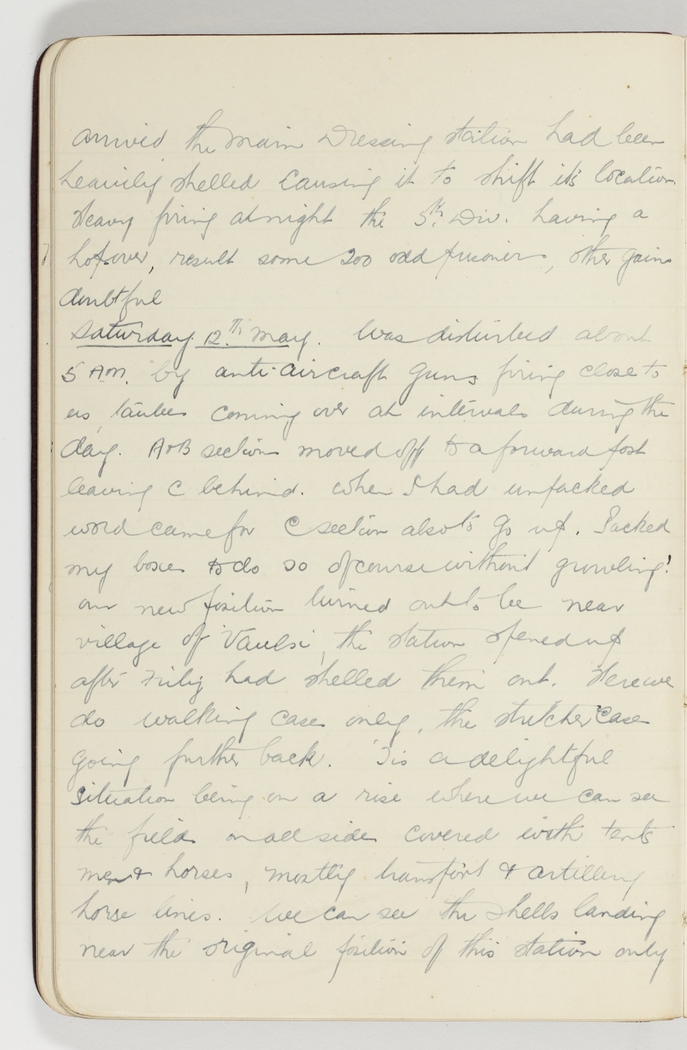 arrived the main Dressing station had been
heavily shelled causing it to shift its location
Heavy firing at night the 5th. Div. having a
hopover, result some 200 odd prisoners, other gains
doubtful
Saturday. 12.th May. Was disturbed about
5 A.m. by anti-aircraft guns firing close to
us, taubes coming over at intervals during the
day. A & B sections moved off to a forward post
leaving C behind. When I had unpacked
word came for C section also to go up. Packed
my boxes to do so of course without growling!
our new position turned out to be near
village of Vaulx, the station opened up
after Fritz had shelled them out. Here we
do walking cases only, the stretcher cases
going further back. 'Tis a delightful
situation being on a rise where we can see
the fields on all sides covered with tents
men & horses, mostly transport & artillery
horse lines. We can see the shells landing
near the original position of this station only